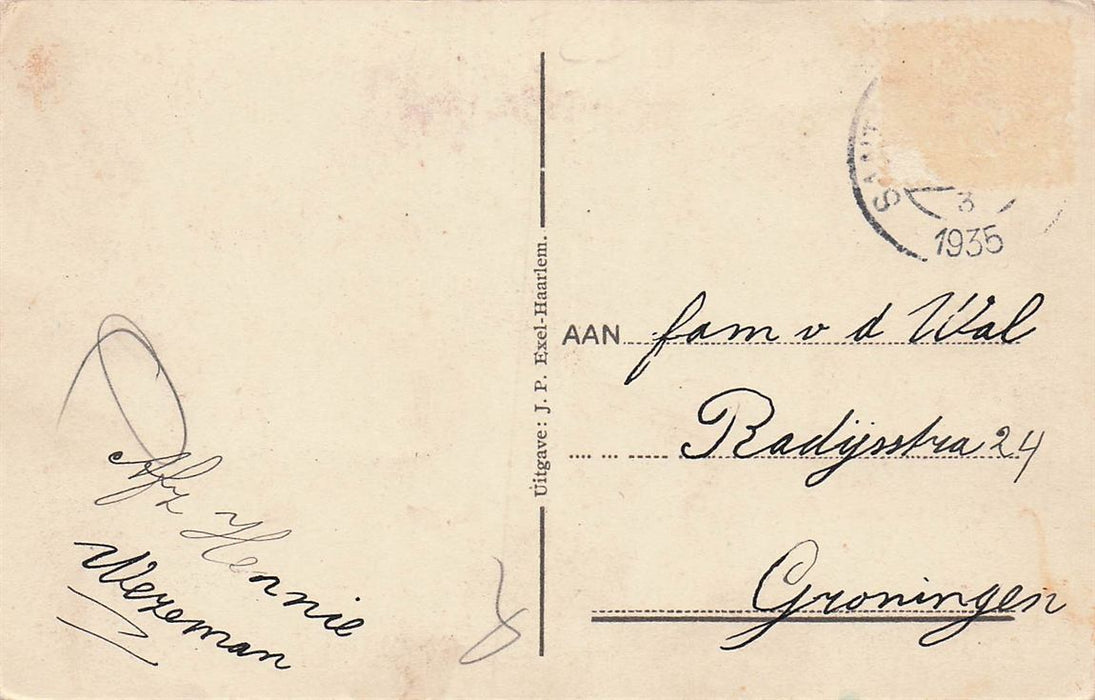 Afz Hennie
Wezeman
Uitgave: J. P. Exel-Haarlem.
3
1935
AAN fam v d Wal
Radijsstra 24
Groningen